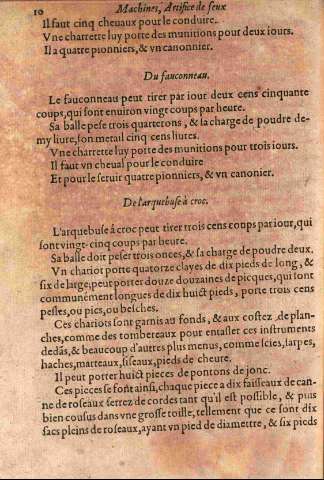 10 Machines, Artifice de feux
Il faut cinq cheuaux pour le conduire.
Vne charrette luy porte des munitions pour deux iours.
Il a quatre pionniers, & vn canonnier.
Du fauconneau.
Le fauconneau peut tirer par iour deux cens cinquante
coups, qui sont enuiron vingt coups par heure.
Sa balle pese trois quarterons, & la charge de poudre de-
my liure, son metail cinq cens liures.
Vne charrette luy porte des munitions pour trois iours.
Il faut vn cheual pour le conduire
Et pour le seruir quatre pionniers, & vn canonier.
De l'arquebuse à croc.
L'arquebuse à croc peut tirer trois cens coups par iour, qui
sont vingt-cinq coups par heure.
Sa balle doit peser trois onces, & sa charge de poudre deux.
Vn chariot porte quatorze clayes de dix pieds de long, &
six de large, peut porter douze douzaines de picques, qui sont
communément longues de dix huict pieds, porte trois cens
pesles, ou pics, ou besches.
Ces chariots sont garnis au fonds, & aux costez, de plan-
ches, comme des tombereaux pour entasser ces instruments
dedãs, & beaucoup d'autres plus menus, comme scies, sarpes,
haches, marteaux, liseaux, pieds de cheure.
Il peut porter huict pieces de pontons de jonc.
Ces pieces se font ainsi, chaque piece a dix faisseaux de can-
ne de roseaux serrez de cordes tant qu'il est possible, & puis
bien cousus dans vne grosse toille, tellement que ce sont dix
sacs pleins de roseaux, ayant vn pied de diametre, & six pieds